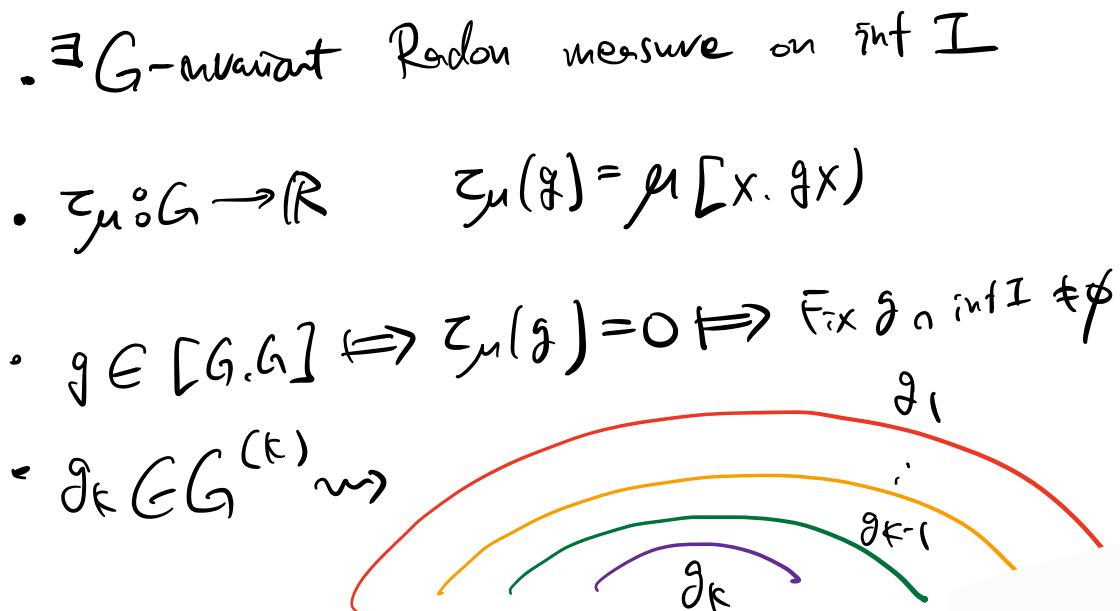 . ∃ G-invariant Radon measure on int I
• τ_μ : G → ℝ   τ_μ(g) = μ[x. gx)
• g ∈ [G.G] ⟺ τ_μ(g) = 0 ⟺ Fix g ∩ int I ≠ ∅
g_1
• g_k ∈ G^(k) ⇝
⋮
g_k-1
g_k